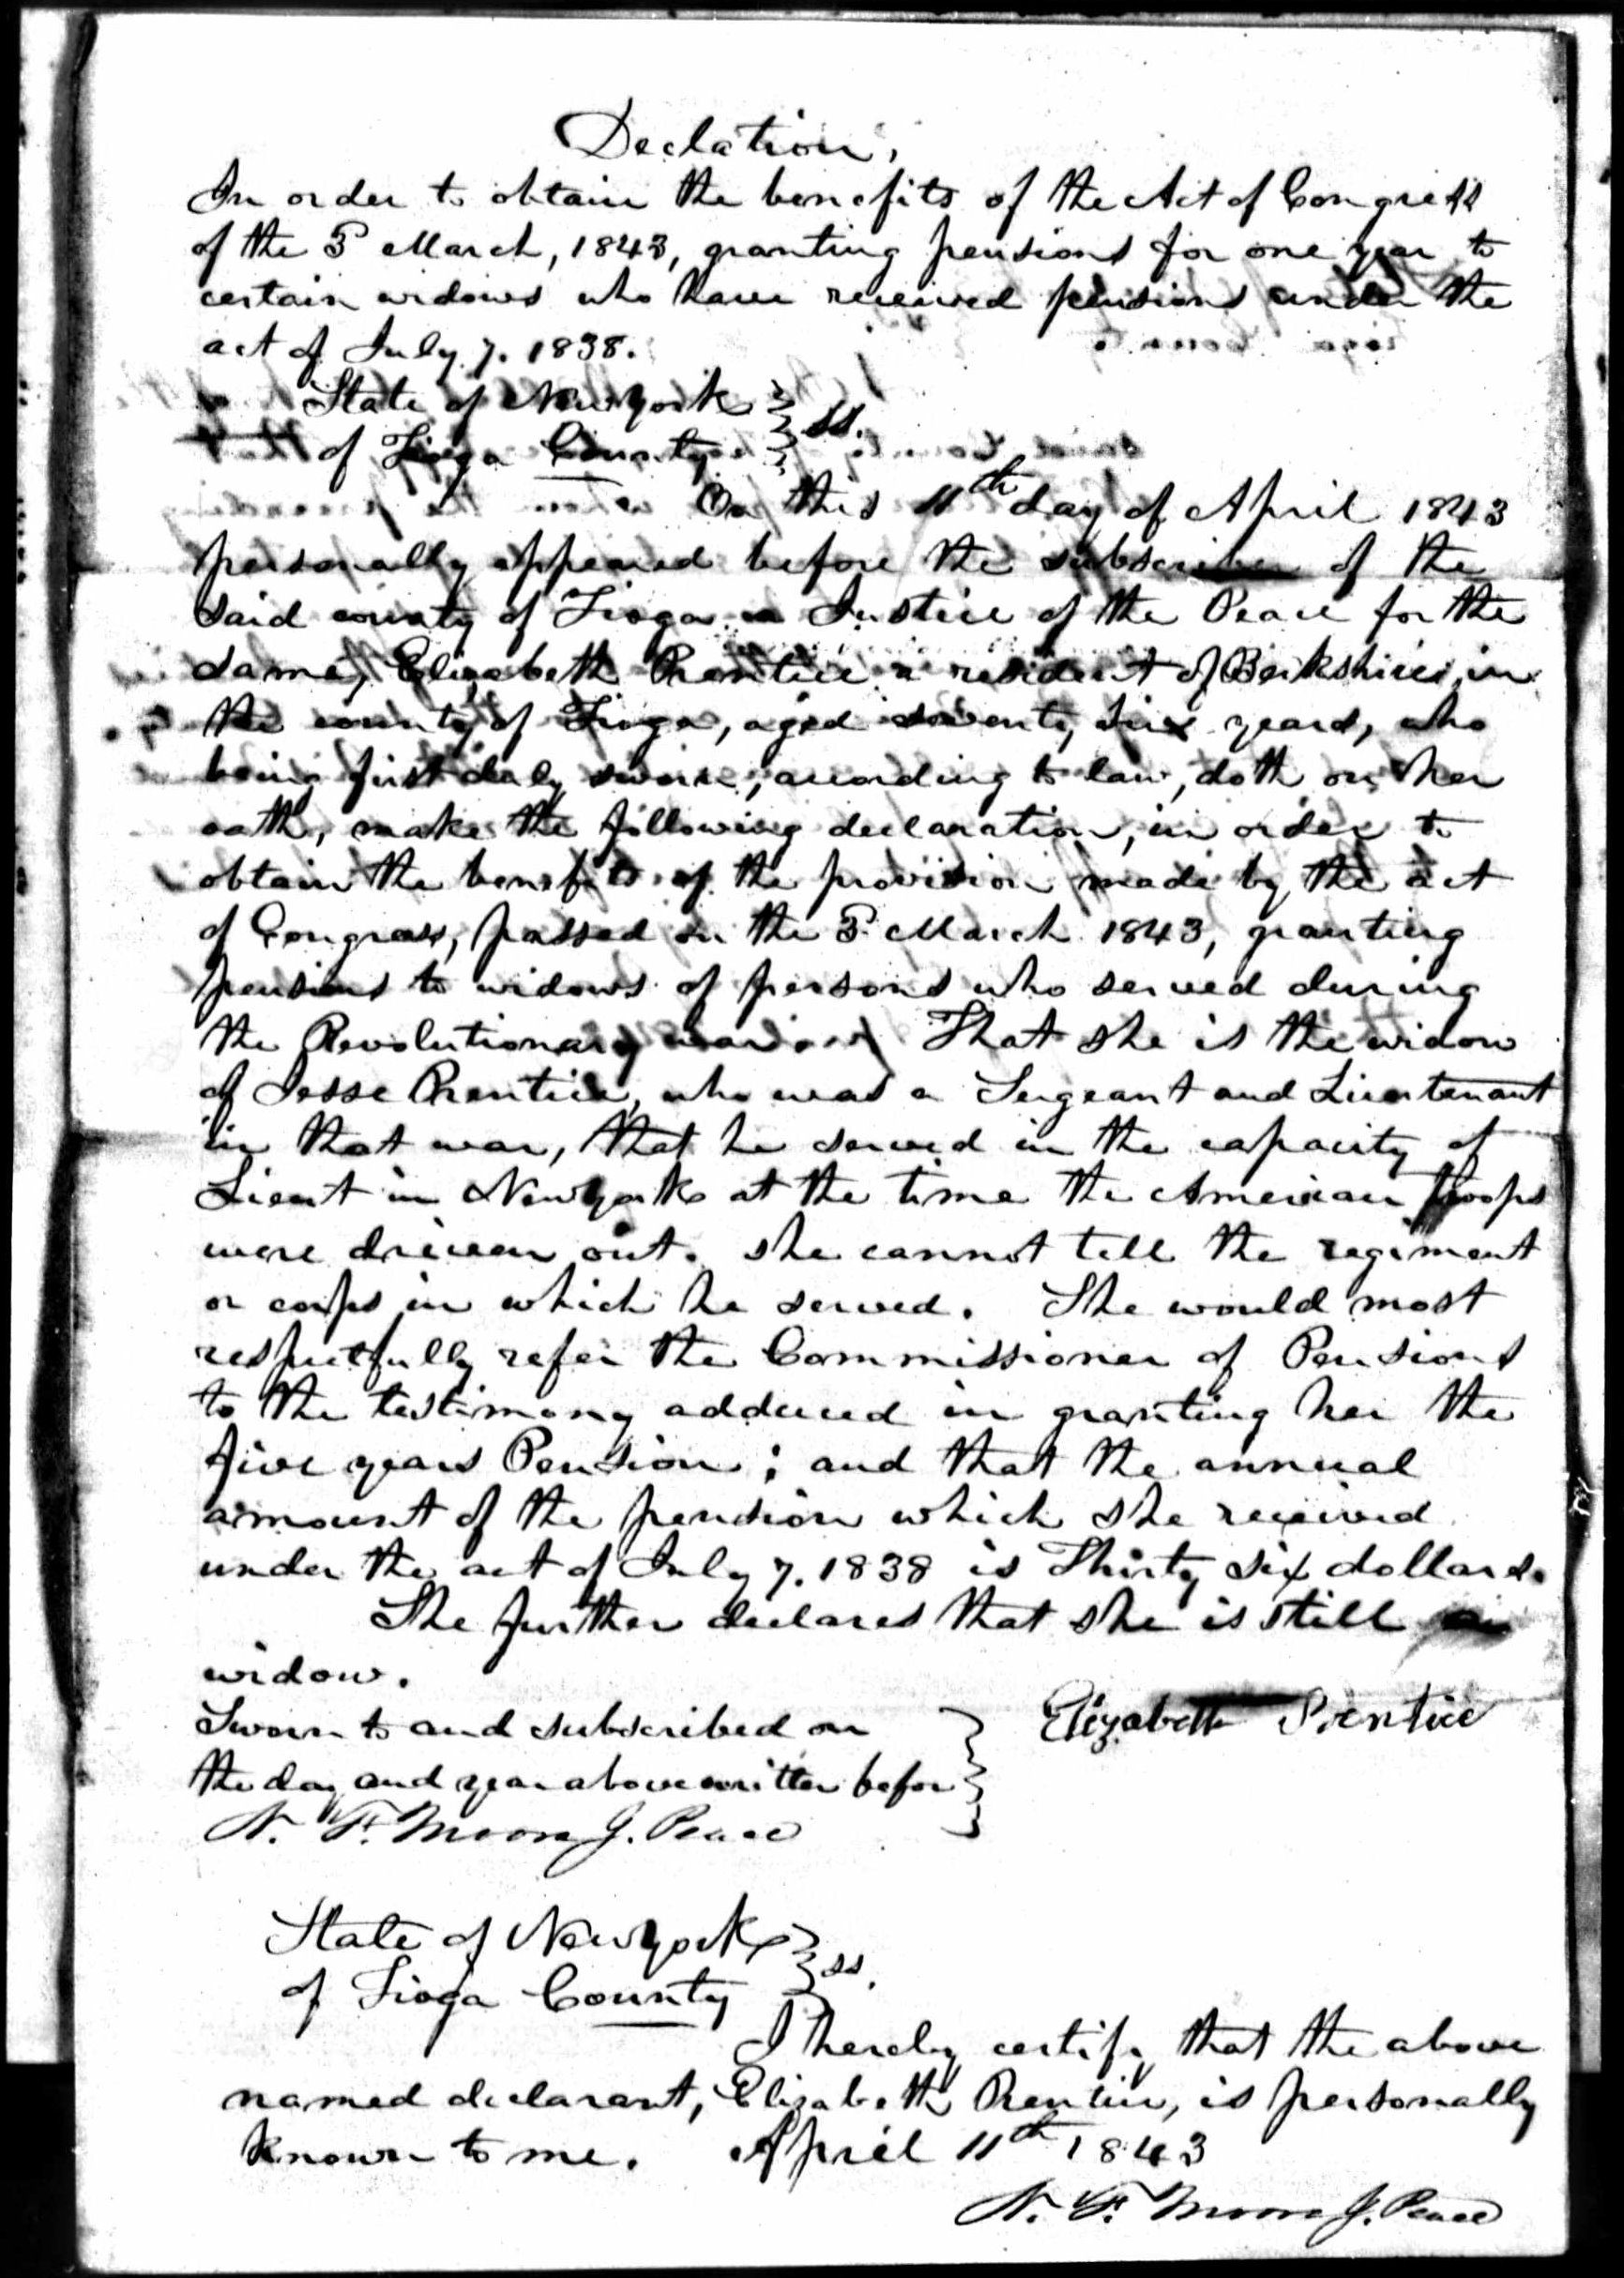 Declation,
In order to obtain the benefits of the Act of Congress
of the 3d March, 1843, granting pensions for one year to
certain widows who have received pensions under the
act of July 7. 1838.
State of New York } ss.
of Tioga County }
On this 11th day of April 1843
personally appeared before the subscriber of the
said county of Tioga a Justice of the Peace for the
same, Elizabeth Prentice a resident of Berkshire, in
the county of Tioga, aged seventy six years, who
being first duly sworn, according to law, doth on her
oath, make the following declaration, in order to
obtain the benefits of the provision made by the act
of Congress, passed on the 3d March 1843, granting
pensions to widows of persons who served during
the Revolutionary war. That she is the widow
of Jesse Prentice, who was a Sergeant and Lieutenant
in that war, that he served in the capacity of
Lieut in New York at the time the American troops
were driven out. she cannot tell the regiment
or corps in which he served. She would most
respectfully refer the Commissioner of Pensions
to the testimony adduced in granting her the
five years Pension; and that the annual
amount of the pension which she received
under the act of July 7. 1838 is Thirty six dollars.
She further declares that she is still a
widow.
Sworn to and subscribed on } Elizabeth Prentice
the day and year above written befor }
N. F. Moore J. Peace
State of New York } ss.
of Tioga County }
I hereby certify that the above
named declarant, Elizabeth Prentice, is personally
known to me. April 11th 1843
N. F. Moore J. Peace